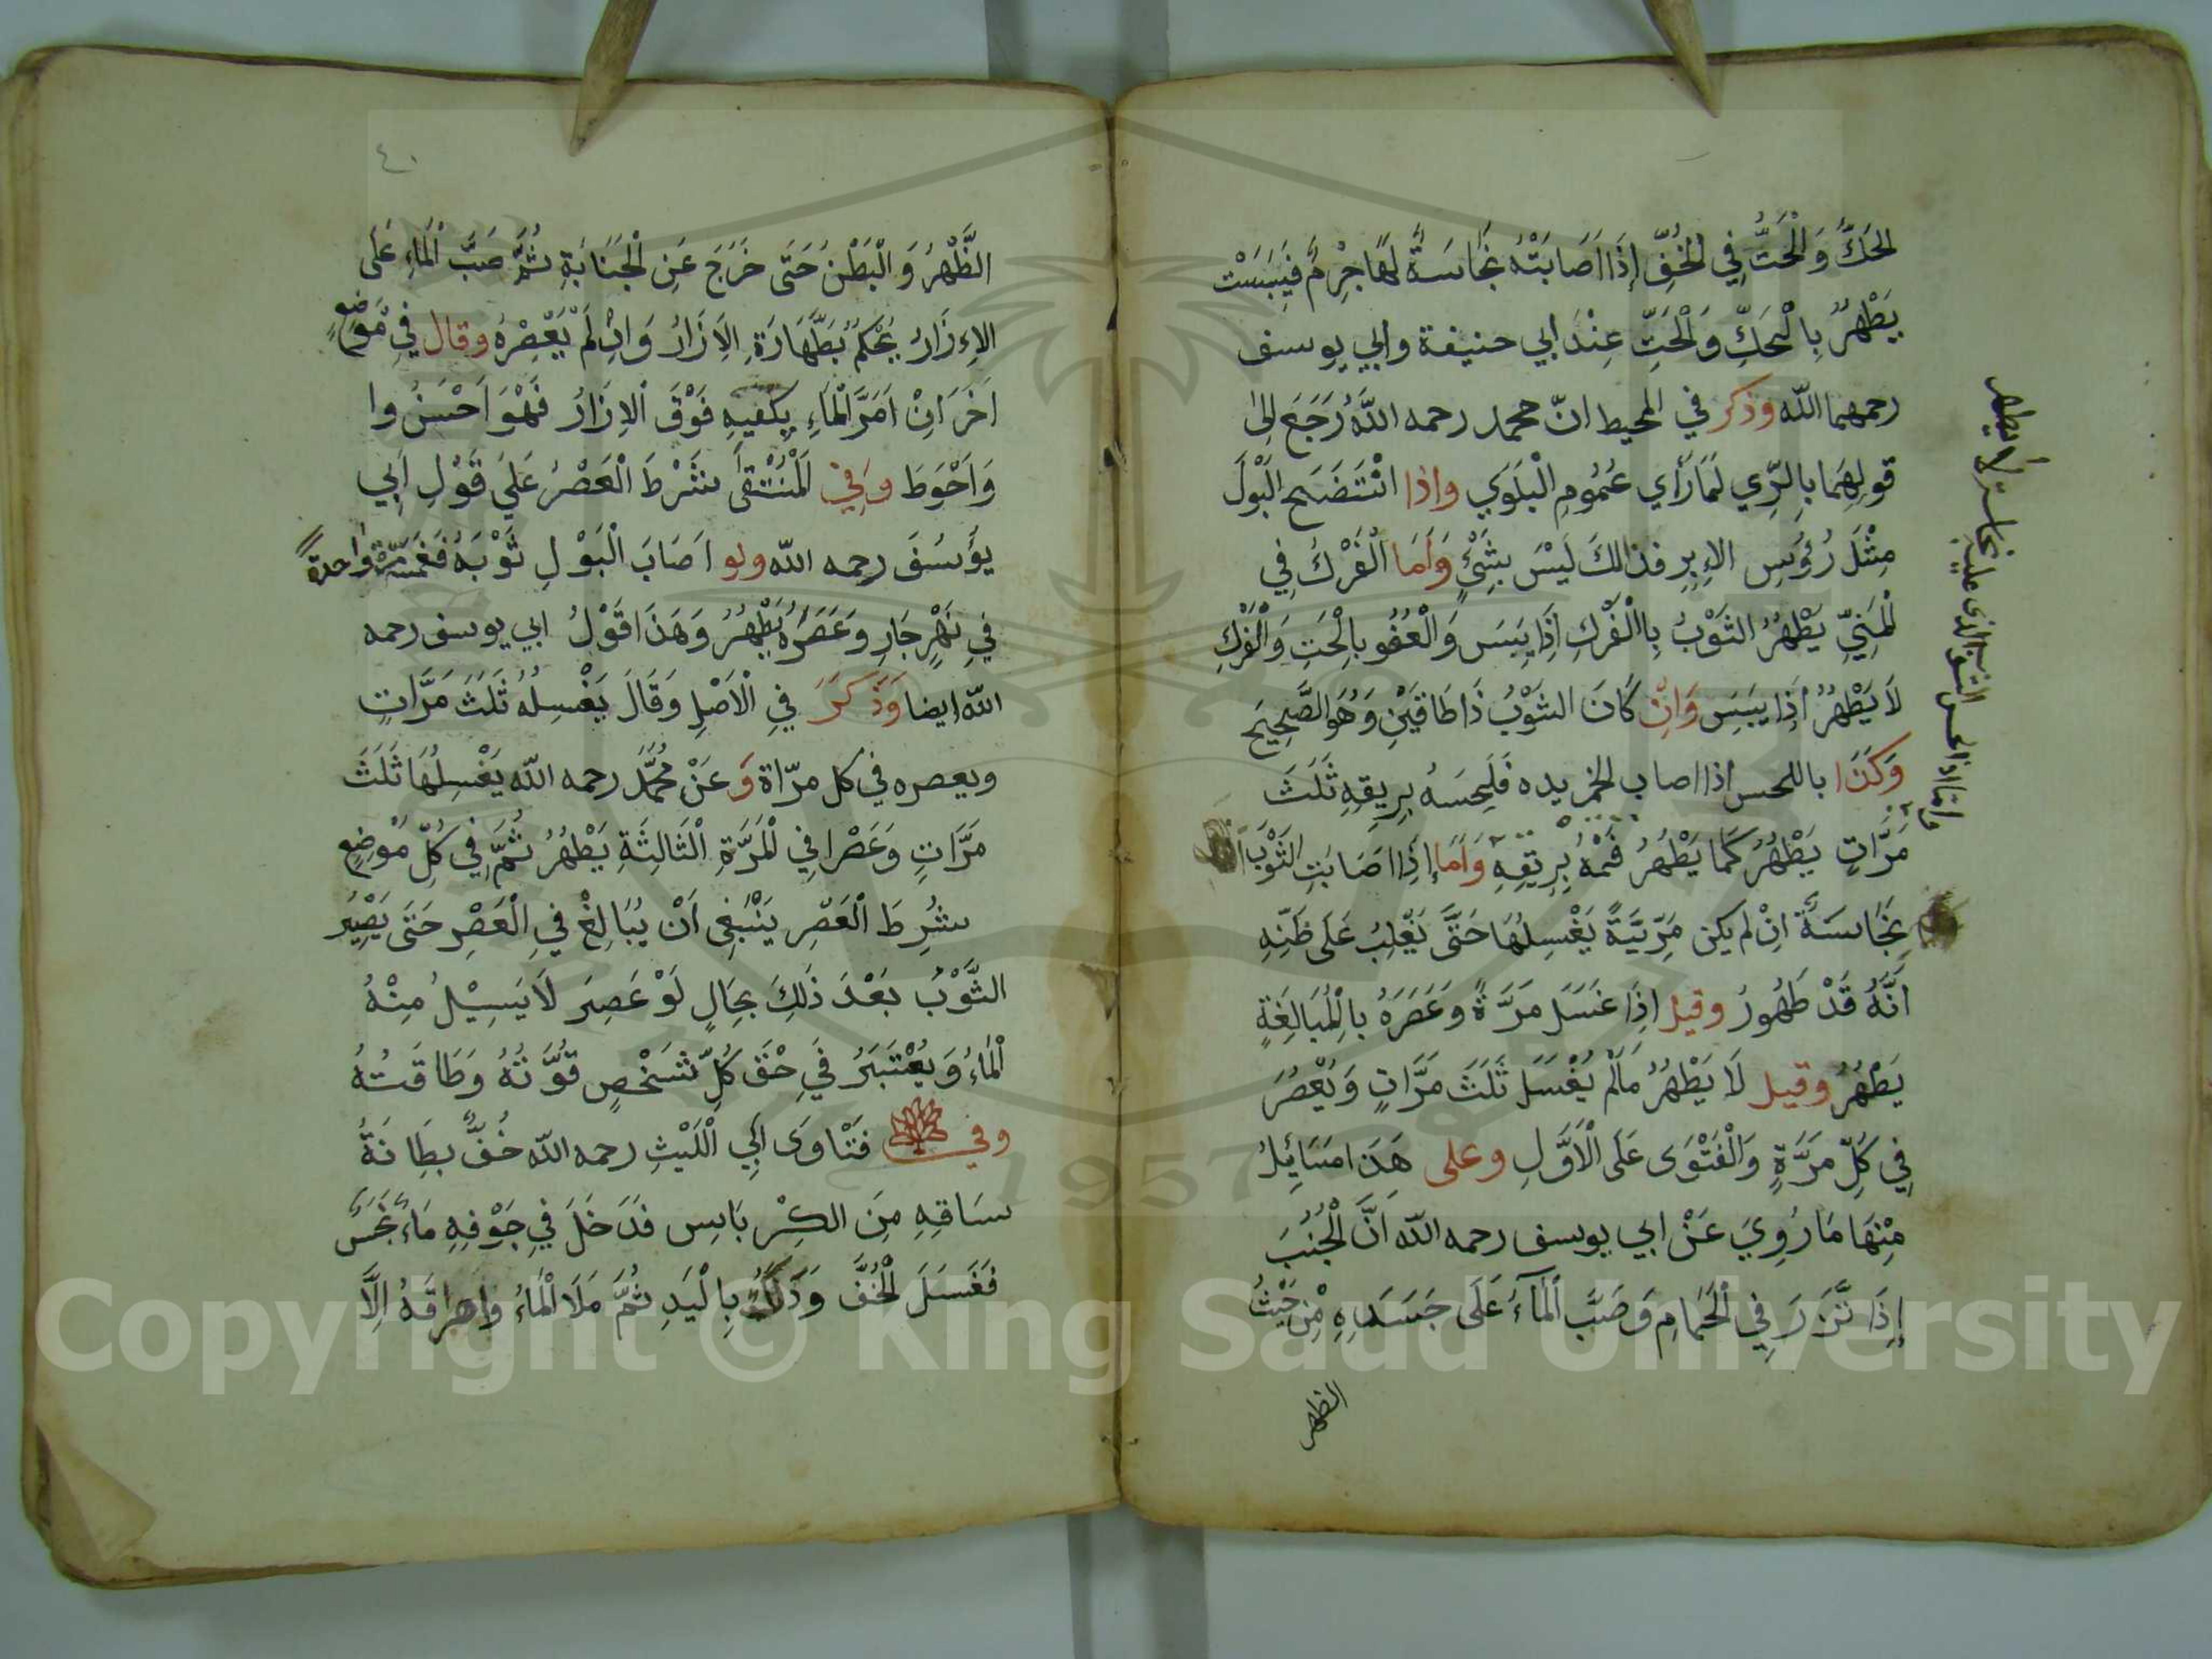 الحَكَّ وَالْحَتُّ فِي الْخُفِّ إِذَا اَصَابَتْهُ نَجَاسَةٌ لَهَا جِرْمٌ فَيَبِسَتْ
يَطْهُرُ بِالْحَكِّ وَالْحَتِّ عِنْدَ ابي حنيفة وابي يوسف
رحمهما الله وذكر في المحيط انّ محمد رحمه اللهُ رَجَعَ اِلىٰ
قولِهِمَا بِالرِّي لَمَّا رَأي عُمُومِ الْبَلْوَي واذا انْتَضَحِ الْبَوْلَ
مِثْلَ رُؤُسِ الاِبِرِ فذالكَ لَيْسَ بِشَيْءٍ وَاَمَا الْفَرْكُ فِي
الْمَنِيِّ يَطْهُرُ الثَوْبُ بِالْفَرْكِ اِذَا يَبَسَ وَالْعُفُو بِالْحَتِ وَالْفَرْكِ
لَا يَطْهُرُ اِذَا يَبَسَ وَاِنْ كَانَ الثَوْبُ ذَا طَاقَيْنِ وَهُوَ الصَّحِيحَ
وَكَذَا باللحس اذا اصاب الخمر يده فَلَحِسَهُ بِرِيقِهِ ثَلَثَ
مَرَّاتٍ يَطْهُرُ كَمَا يَطْهُرُ فَمُهُ بِرِيقِهِ وَاَمَا إِذَا اصَابَتِ الثَوْبَ
نَجَاسَةً اِنْ لم يكن مَرِّيَّةً يَغْسِلُهَا حَتَّى يَغْلِبُ عَلَى ظَنِّهِ
اَنَّهُ قَدْ طَهُورُ وقيل اِذَا غَسَلَ مَرَّةً وَعَصَرَهُ بِالْمُبَالِغَةٍ
يَطْهُرُ وقيل لَا يَطْهُرُ مَالَمْ يُغْسَلَ ثَلَثَ مَرَّاتٍ وَيُعْصُرَ
فِي كُلِّ مَرَّةٍ وَالْفَتْوَى عَلَى الْاَوَّلِ وعلى هَذَا مَسَائِلُ
مِنْهَا مَا رُوِيَ عَنْ ابي يوسف رحمه الله اَنَّ الْجُنُبَ
إِذَا تَّزَرَ فِي الْحَمَامِ وَصَبَّ الْمَآءَ عَلَى جَسَدِهِ مِنْ حَيْثُ
الظهر
وامّا اذا لحس الثوب الذي عليه نجاسة لا يطهر
٤٠
الظَّهْرُ وَالْبَطْنُ حَتَى خَرَجَ عَنِ الْجَنَابَةِ ثُمَّ صَبَّ الْمَاءِ عَلَى
الاِزَارُ يُحْكَمُ بَطَّهَارَةِ الاِزَارُ وَاِنْ لَمْ يَعْصِرْهُ وقال فِي مَوْضِعٍ
اَخَرَ اِنْ اَمَرَّ الْمَاءِ بِكَفَيهِ فَوْقَ الاِزَارُ فَهْوَ اَحْسَنُ وا
وَاَحْوَطَ وَفِي الْمُنْتَقَى شَرْطَ الْعَصْرُ عَلَي قَوْلِ اَبِي
يؤسُفَ رحمه الله ولو اصَابَ الْبَوْلِ ثَوْبَهُ فَغَمَسَهُ مرّة واحدةً
فِي نَهْرٍ جَارِ وَعَصَرَهُ يَطْهُرُ وَهَذَا قَوْلُ ابي يوسف رحمه
الله ايضا وَذَكَرَ فِي الْاَصْلِ وَقَالَ يَغْسِلُهُ ثَلَثَ مَرَّاتٍ
ويعصره في كل مرّاة وَ عَنْ مُحَمَّدَ رحمه الله يَغْسِلُهَا ثَلَثَ
مَرَّاتٍ وَعَصْرا فِي الْمَرَّةِ الْثَالِثَةِ يَطْهُرُ ثُمَّ فِي كُلِّ مَوْضِعٍ
شُرِطَ الْعَصْرِ يَنْبَغِى اَنْ يُبَالِغْ فِي الْعَصْرِ حَتَى يَصْيُر
الثَّوْبُ بَعْدَ ذَلِكَ بِحَالٍ لَوْ عَصِرَ لَا يَسِيْلُ مِنْهُ
الْمَاءُ وَيُعْتَبَرُ فِي حْقَ كُلِّ شَخْصٍ قُوَّتُهُ وَطَاقَتُهُ
وفي فَتْاوَى اَبِي الْلَيْثِ رحمه الله خُفٌّ بطَِانَةُ
سَاقِهِ مِنَ الكِرْبَاسِ فدَخَلَ فِي جَوْفِهِ مَاءٌ نَجَسٌ
فَغَسَلَ الْخُفَّ وَدَلَكُ بِالْيَدِ ثُمَّ مَلَا الْمَاءُ واهراقَهُ اِلَّا
1957
Copyright © King Saud University